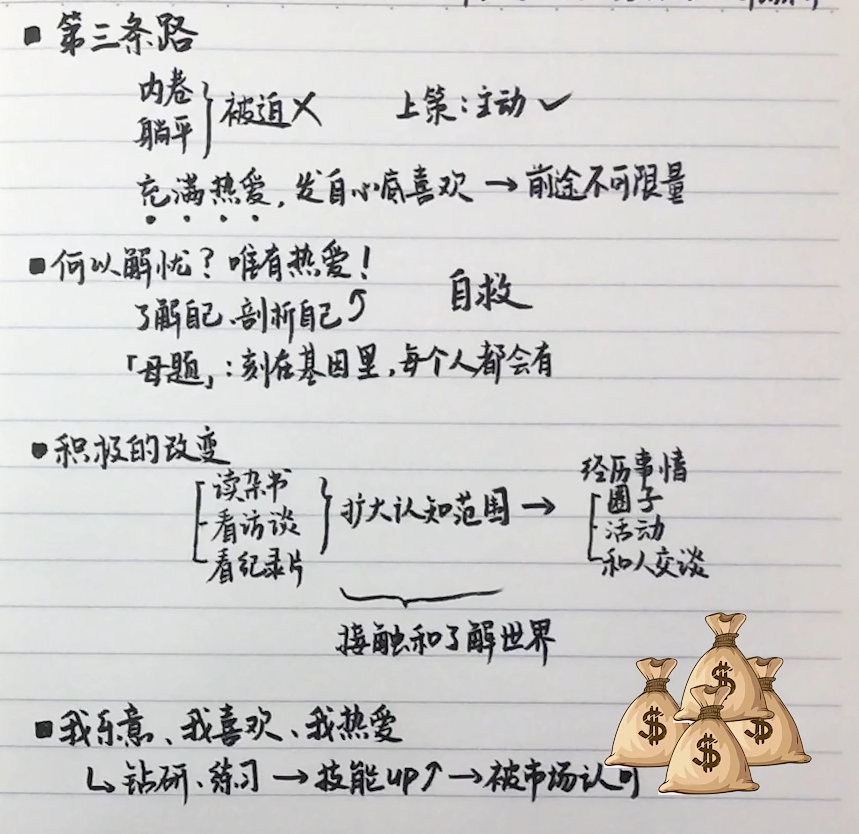 ■ 第三条路
内卷
躺平
} 被迫 ✗ 上策：主动 ✓
充满热爱，发自心底喜欢 → 前途不可限量
■ 何以解忧？唯有热爱！
了解自己、剖析自己 ⤴ 自救
「母题」：刻在基因里，每个人都会有
■ 积极的改变
读杂书
看访谈
看纪录片
} 扩大认知范围 →
经历事情
圈子
活动
和人交谈
接触和了解世界
■ 我乐意、我喜欢、我热爱
↳ 钻研、练习 → 技能up↑ → 被市场认可
$
$
$
$